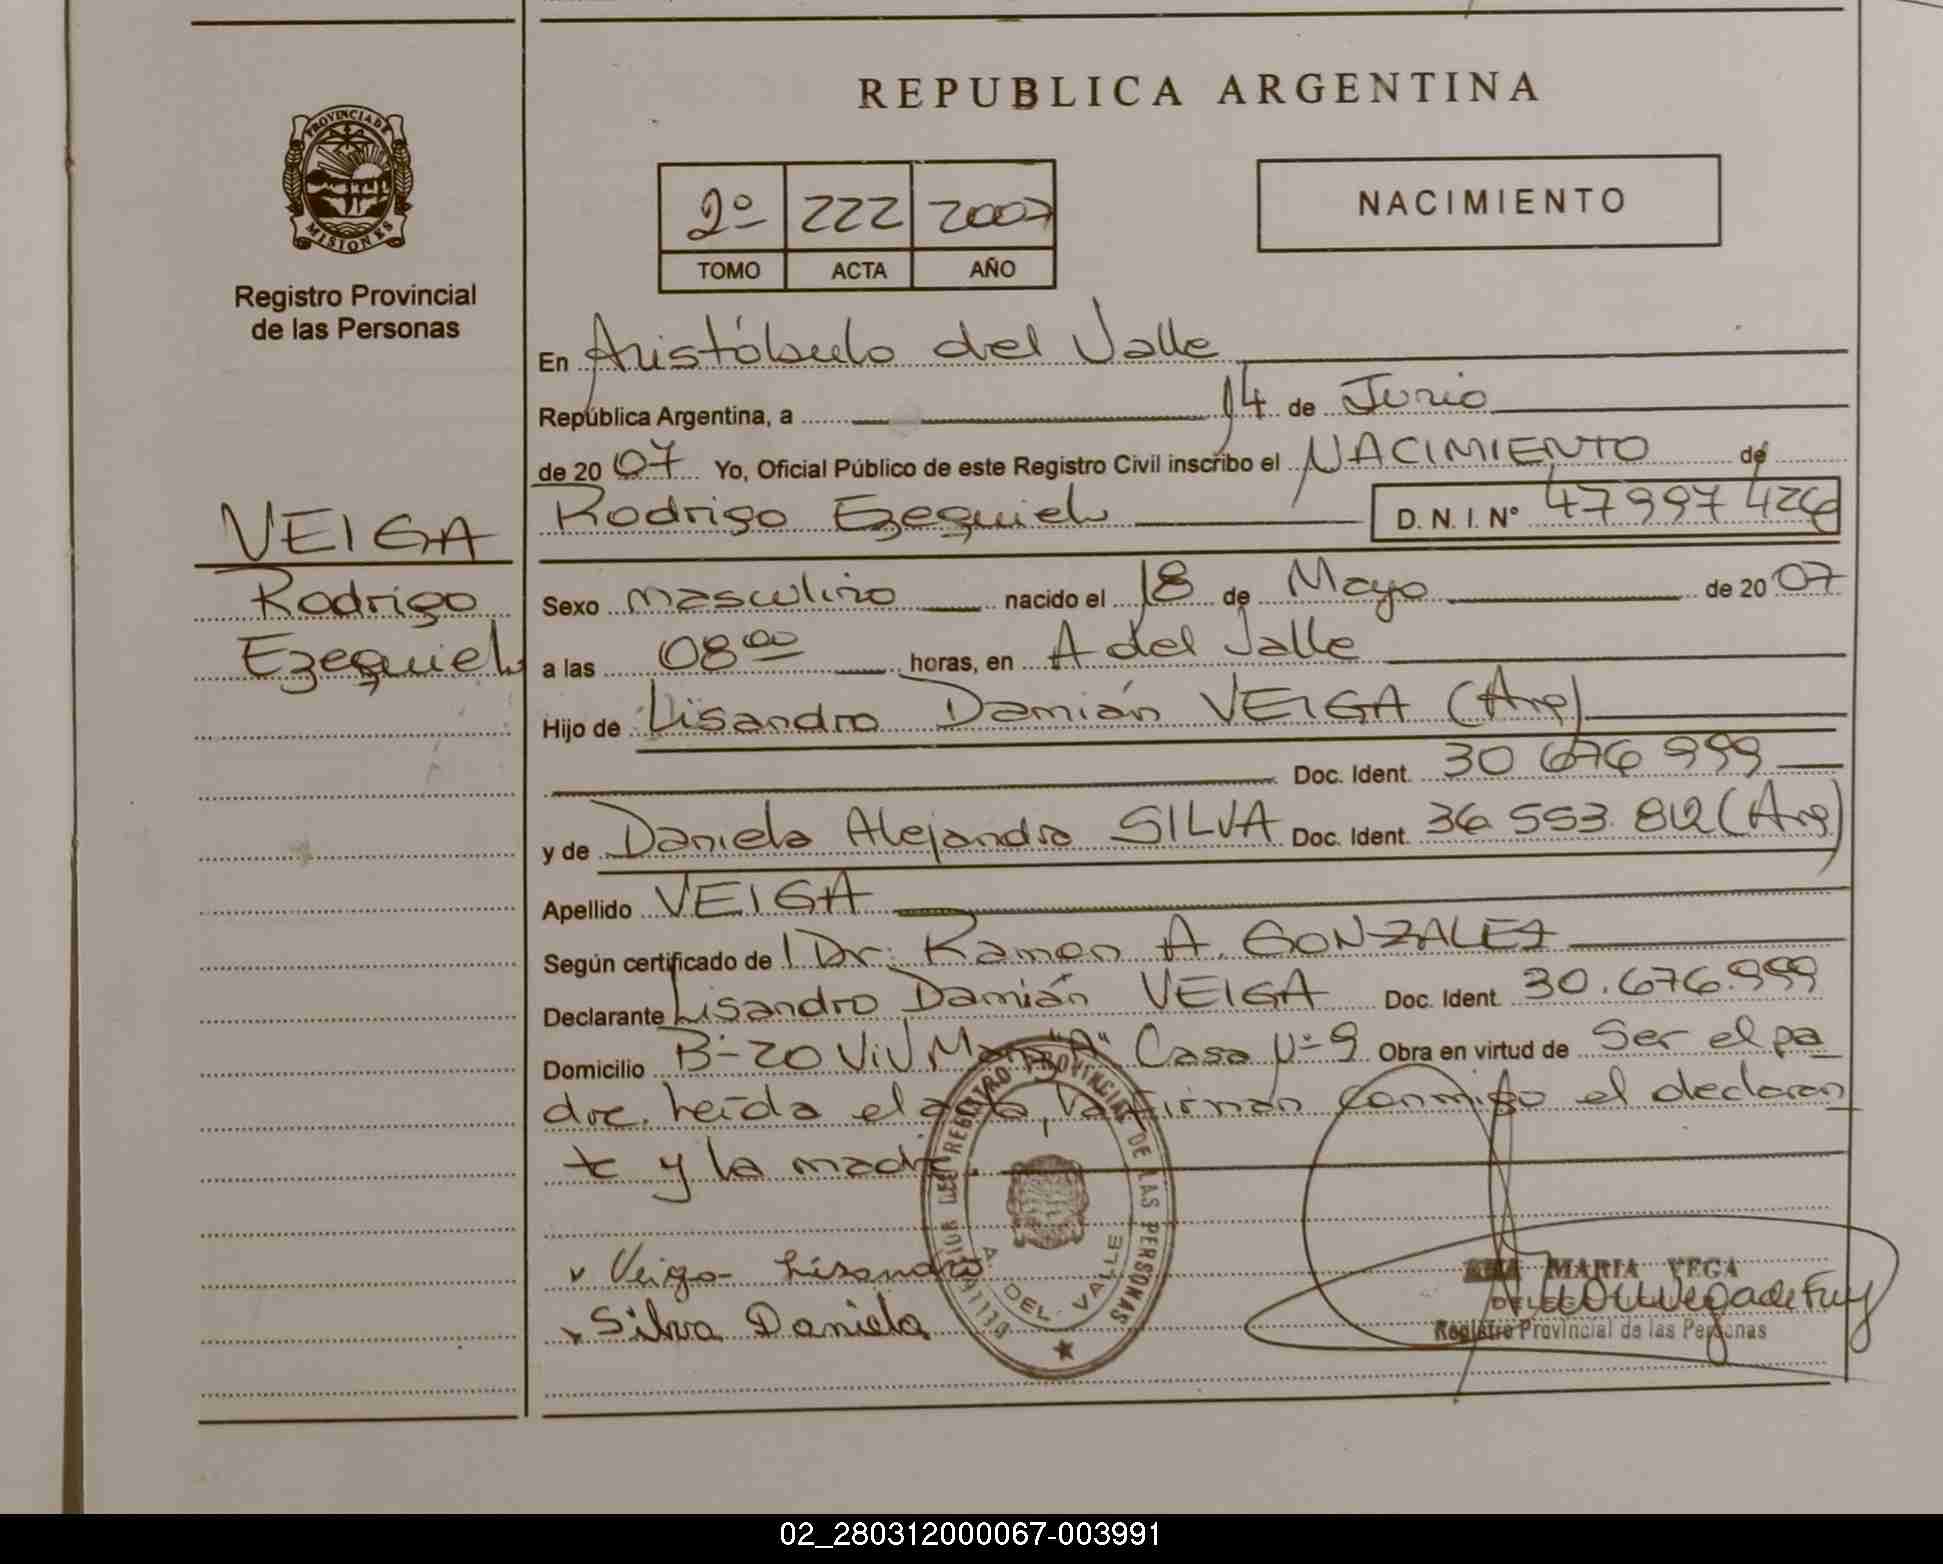 REPUBLICA ARGENTINA
PROVINCIA DE
MISIONES
Registro Provincial
de las Personas
2º 222 2007
TOMO ACTA AÑO
NACIMIENTO
En Aristóbulo del Valle
República Argentina, a 14 de Junio
de 20 07 Yo, Oficial Público de este Registro Civil inscribo el NACIMIENTO de
VEIGA
Rodrigo
Ezequiel
Rodrigo Ezequiel D. N. I. Nº 47997426
Sexo masculino nacido el 18 de Mayo de 20 07
a las 08 00 horas, en A del Valle
Hijo de Lisandro Damián VEIGA (Arg)
Doc. Ident. 30 676 999
y de Daniela Alejandra SILVA Doc. Ident. 36 553. 812 (Arg)
Apellido VEIGA
Según certificado de Dr: Ramon A. GONZALEZ
Declarante Lisandro Damián VEIGA Doc. Ident. 30.676.999
Domicilio B-20 Viv Man "A" Casa Nº 9 Obra en virtud de Ser el pa
dre. Leída el acta, la firman conmigo el declaran
te y la madre.
Veiga Lisandro
Silva Daniela
REGISTRO PROVINCIAL DE LAS PERSONAS
A. DEL VALLE
ANA MARIA VEGA
Registro Provincial de las Personas
02_280312000067-003991